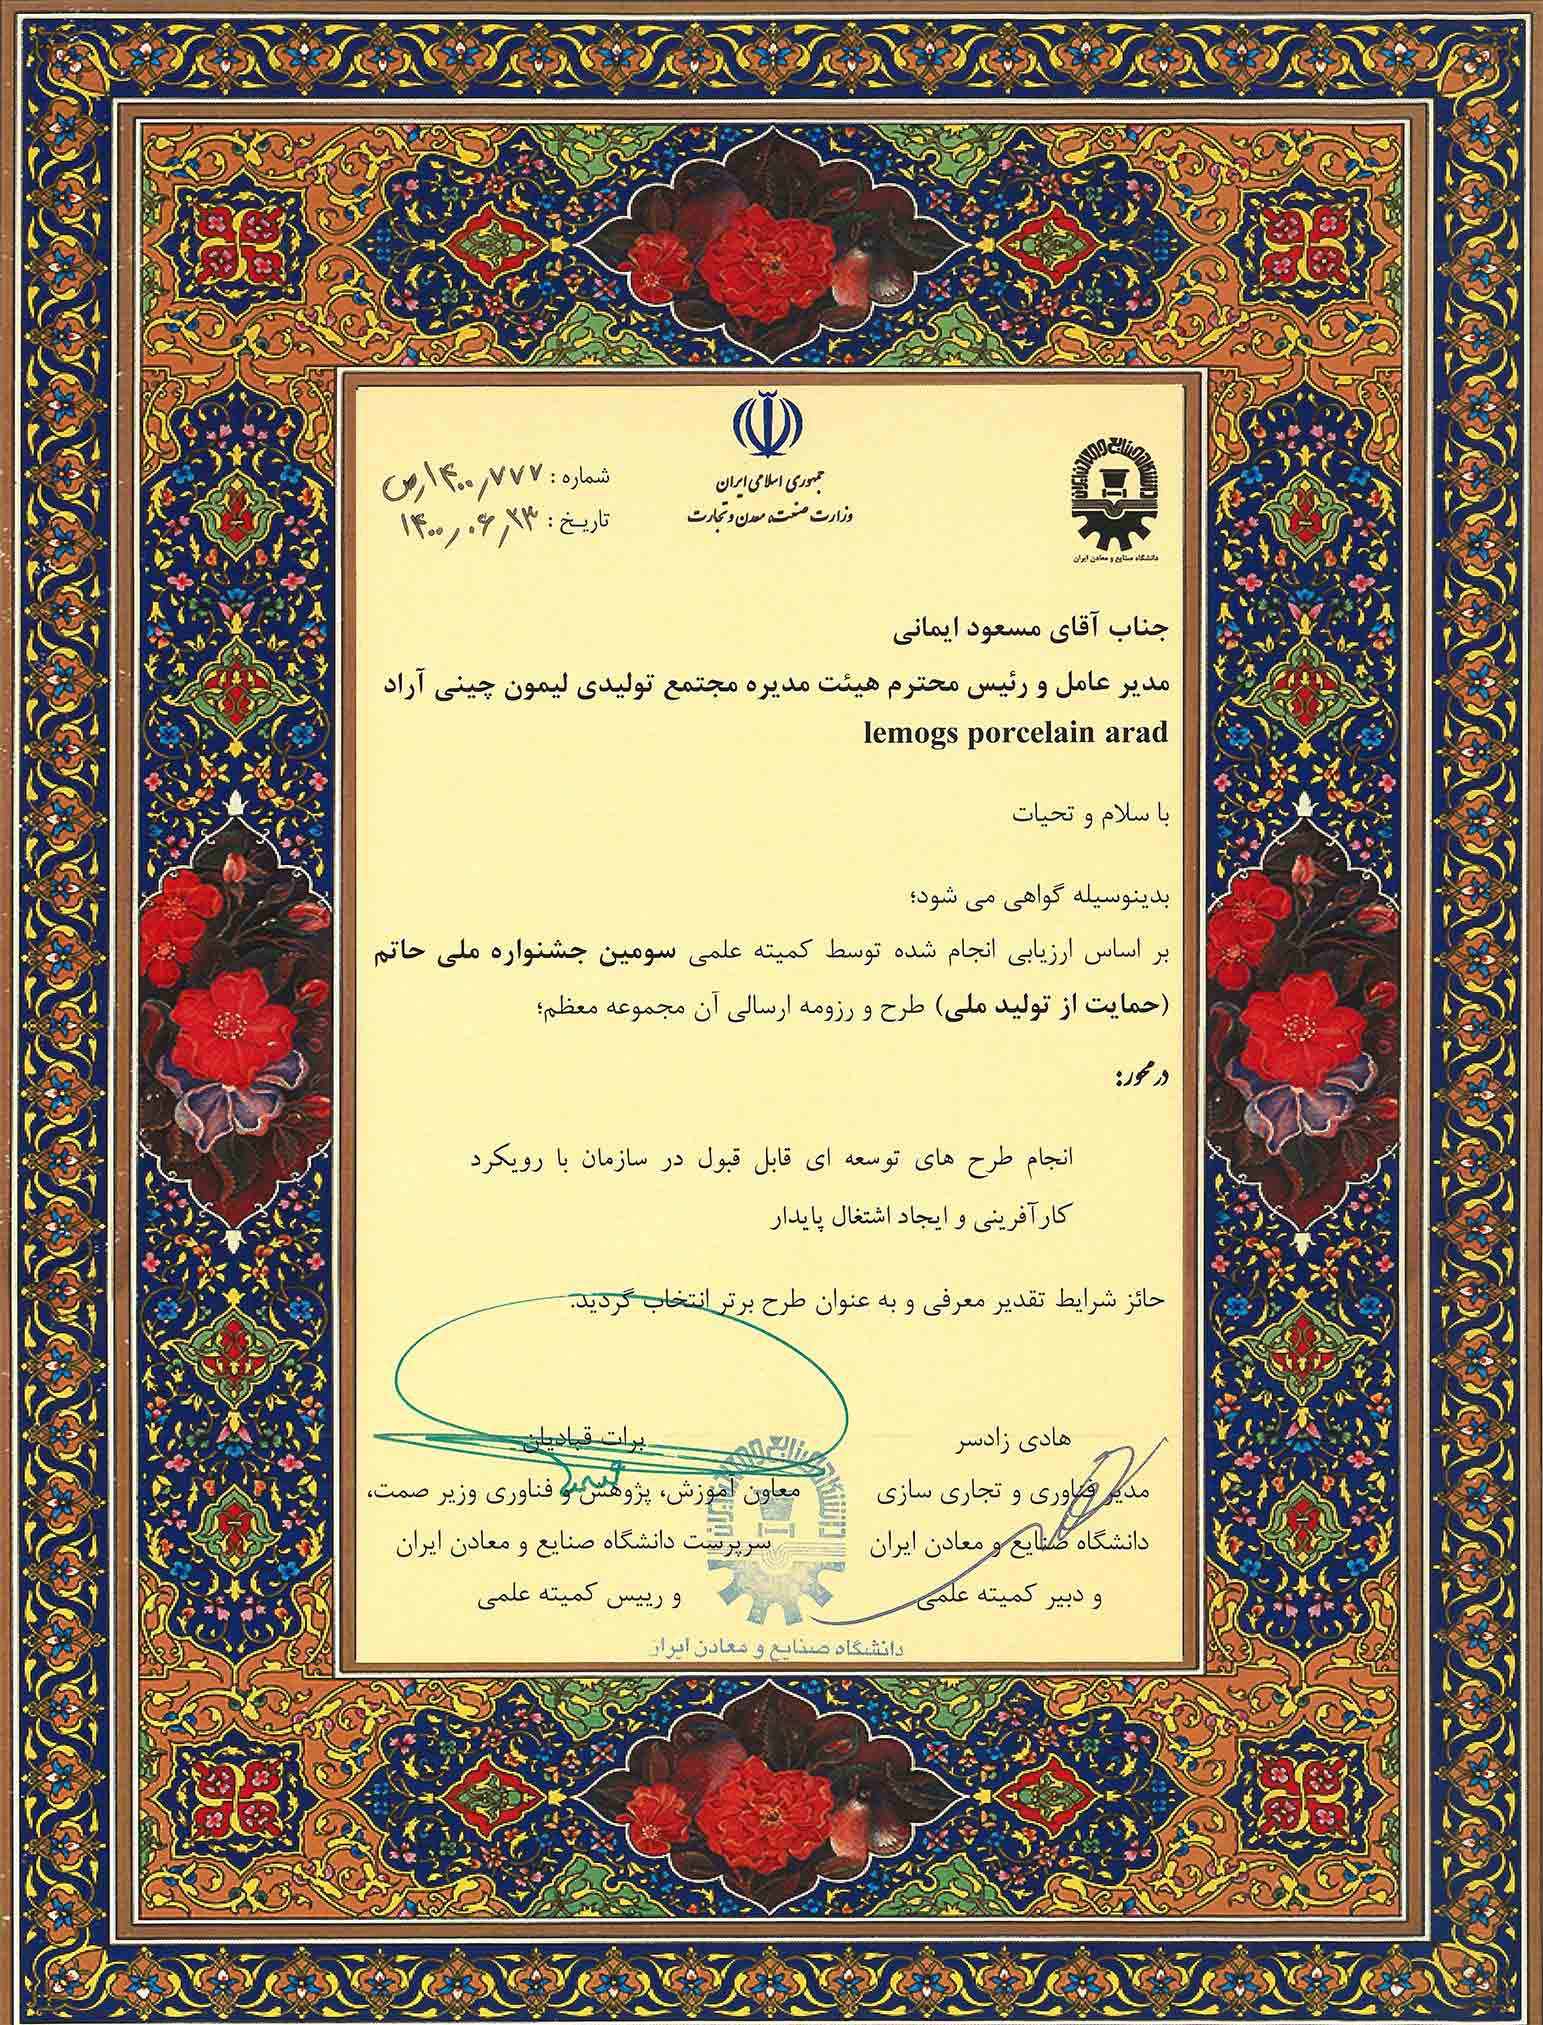 جمهوری اسلامی ایران
وزارت صنعت، معدن و تجارت
شماره : ۱۴۰۰٫۷۷۷٫ص
تاریخ : ۱۴۰۰٫۰۶٫۲۳
دانشگاه صنایع و معادن ایران
دانشگاه صنایع و معادن ایران
جناب آقای مسعود ایمانی
مدیر عامل و رئیس محترم هیئت مدیره مجتمع تولیدی لیمون چینی آراد
lemogs porcelain arad
با سلام و تحیات
بدینوسیله گواهی می شود؛
بر اساس ارزیابی انجام شده توسط کمیته علمی سومین جشنواره ملی حاتم
(حمایت از تولید ملی) طرح و رزومه ارسالی آن مجموعه معظم؛
در محور:
انجام طرح های توسعه ای قابل قبول در سازمان با رویکرد
کارآفرینی و ایجاد اشتغال پایدار
حائز شرایط تقدیر معرفی و به عنوان طرح برتر انتخاب گردید.
هادی زادسر
مدیر فناوری و تجاری سازی
دانشگاه صنایع و معادن ایران
و دبیر کمیته علمی
برات قبادیان
معاون آموزش، پژوهش و فناوری وزیر صمت،
سرپرست دانشگاه صنایع و معادن ایران
و رییس کمیته علمی
دانشگاه صنایع و معادن ایران
دانشگاه صنایع و معادن ایران